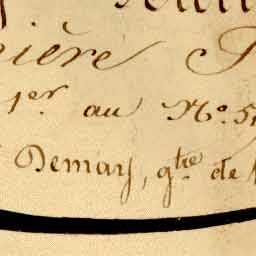 ière
1er au No. 5
Demay, gtre de